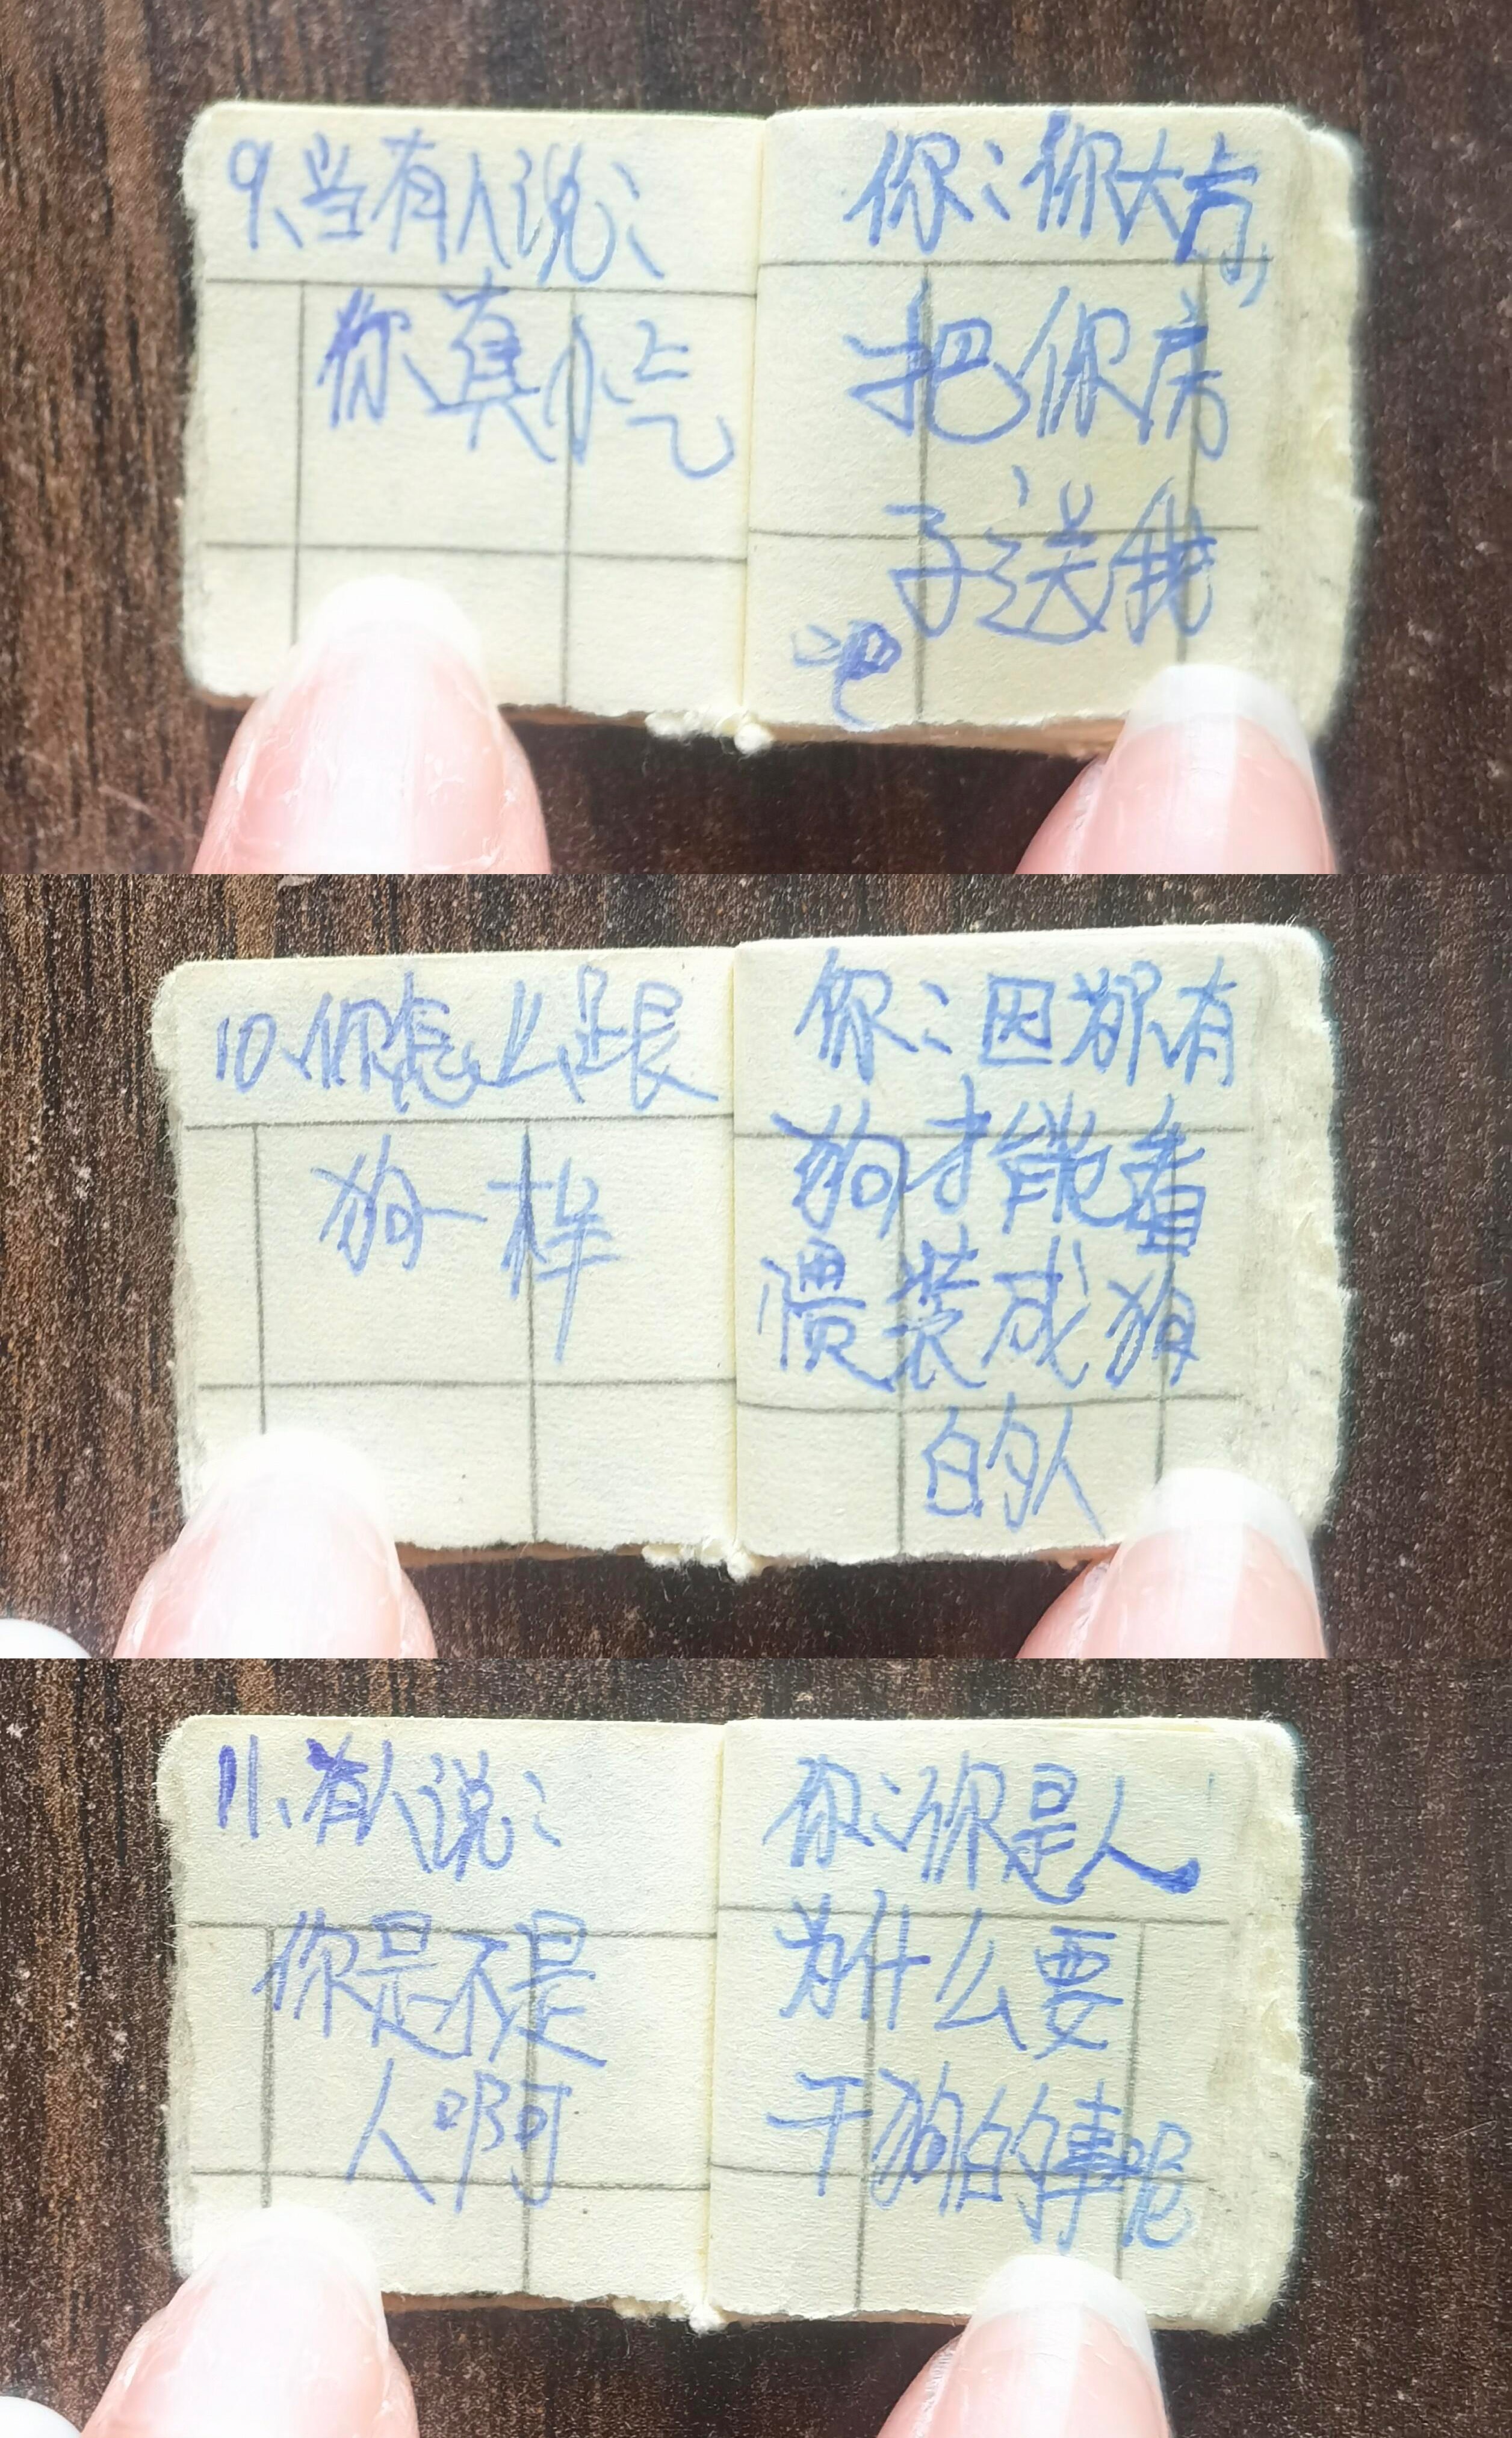 9、当有人说：
你真小气
你：你大方，
把你房
子送我
吧
10、你怎么跟长
狗一样
你：因为只有
狗才能看
惯装成狗
的人
11、有人说：
你是不是
人啊
你：你是人
为什么要
干狗的事呢